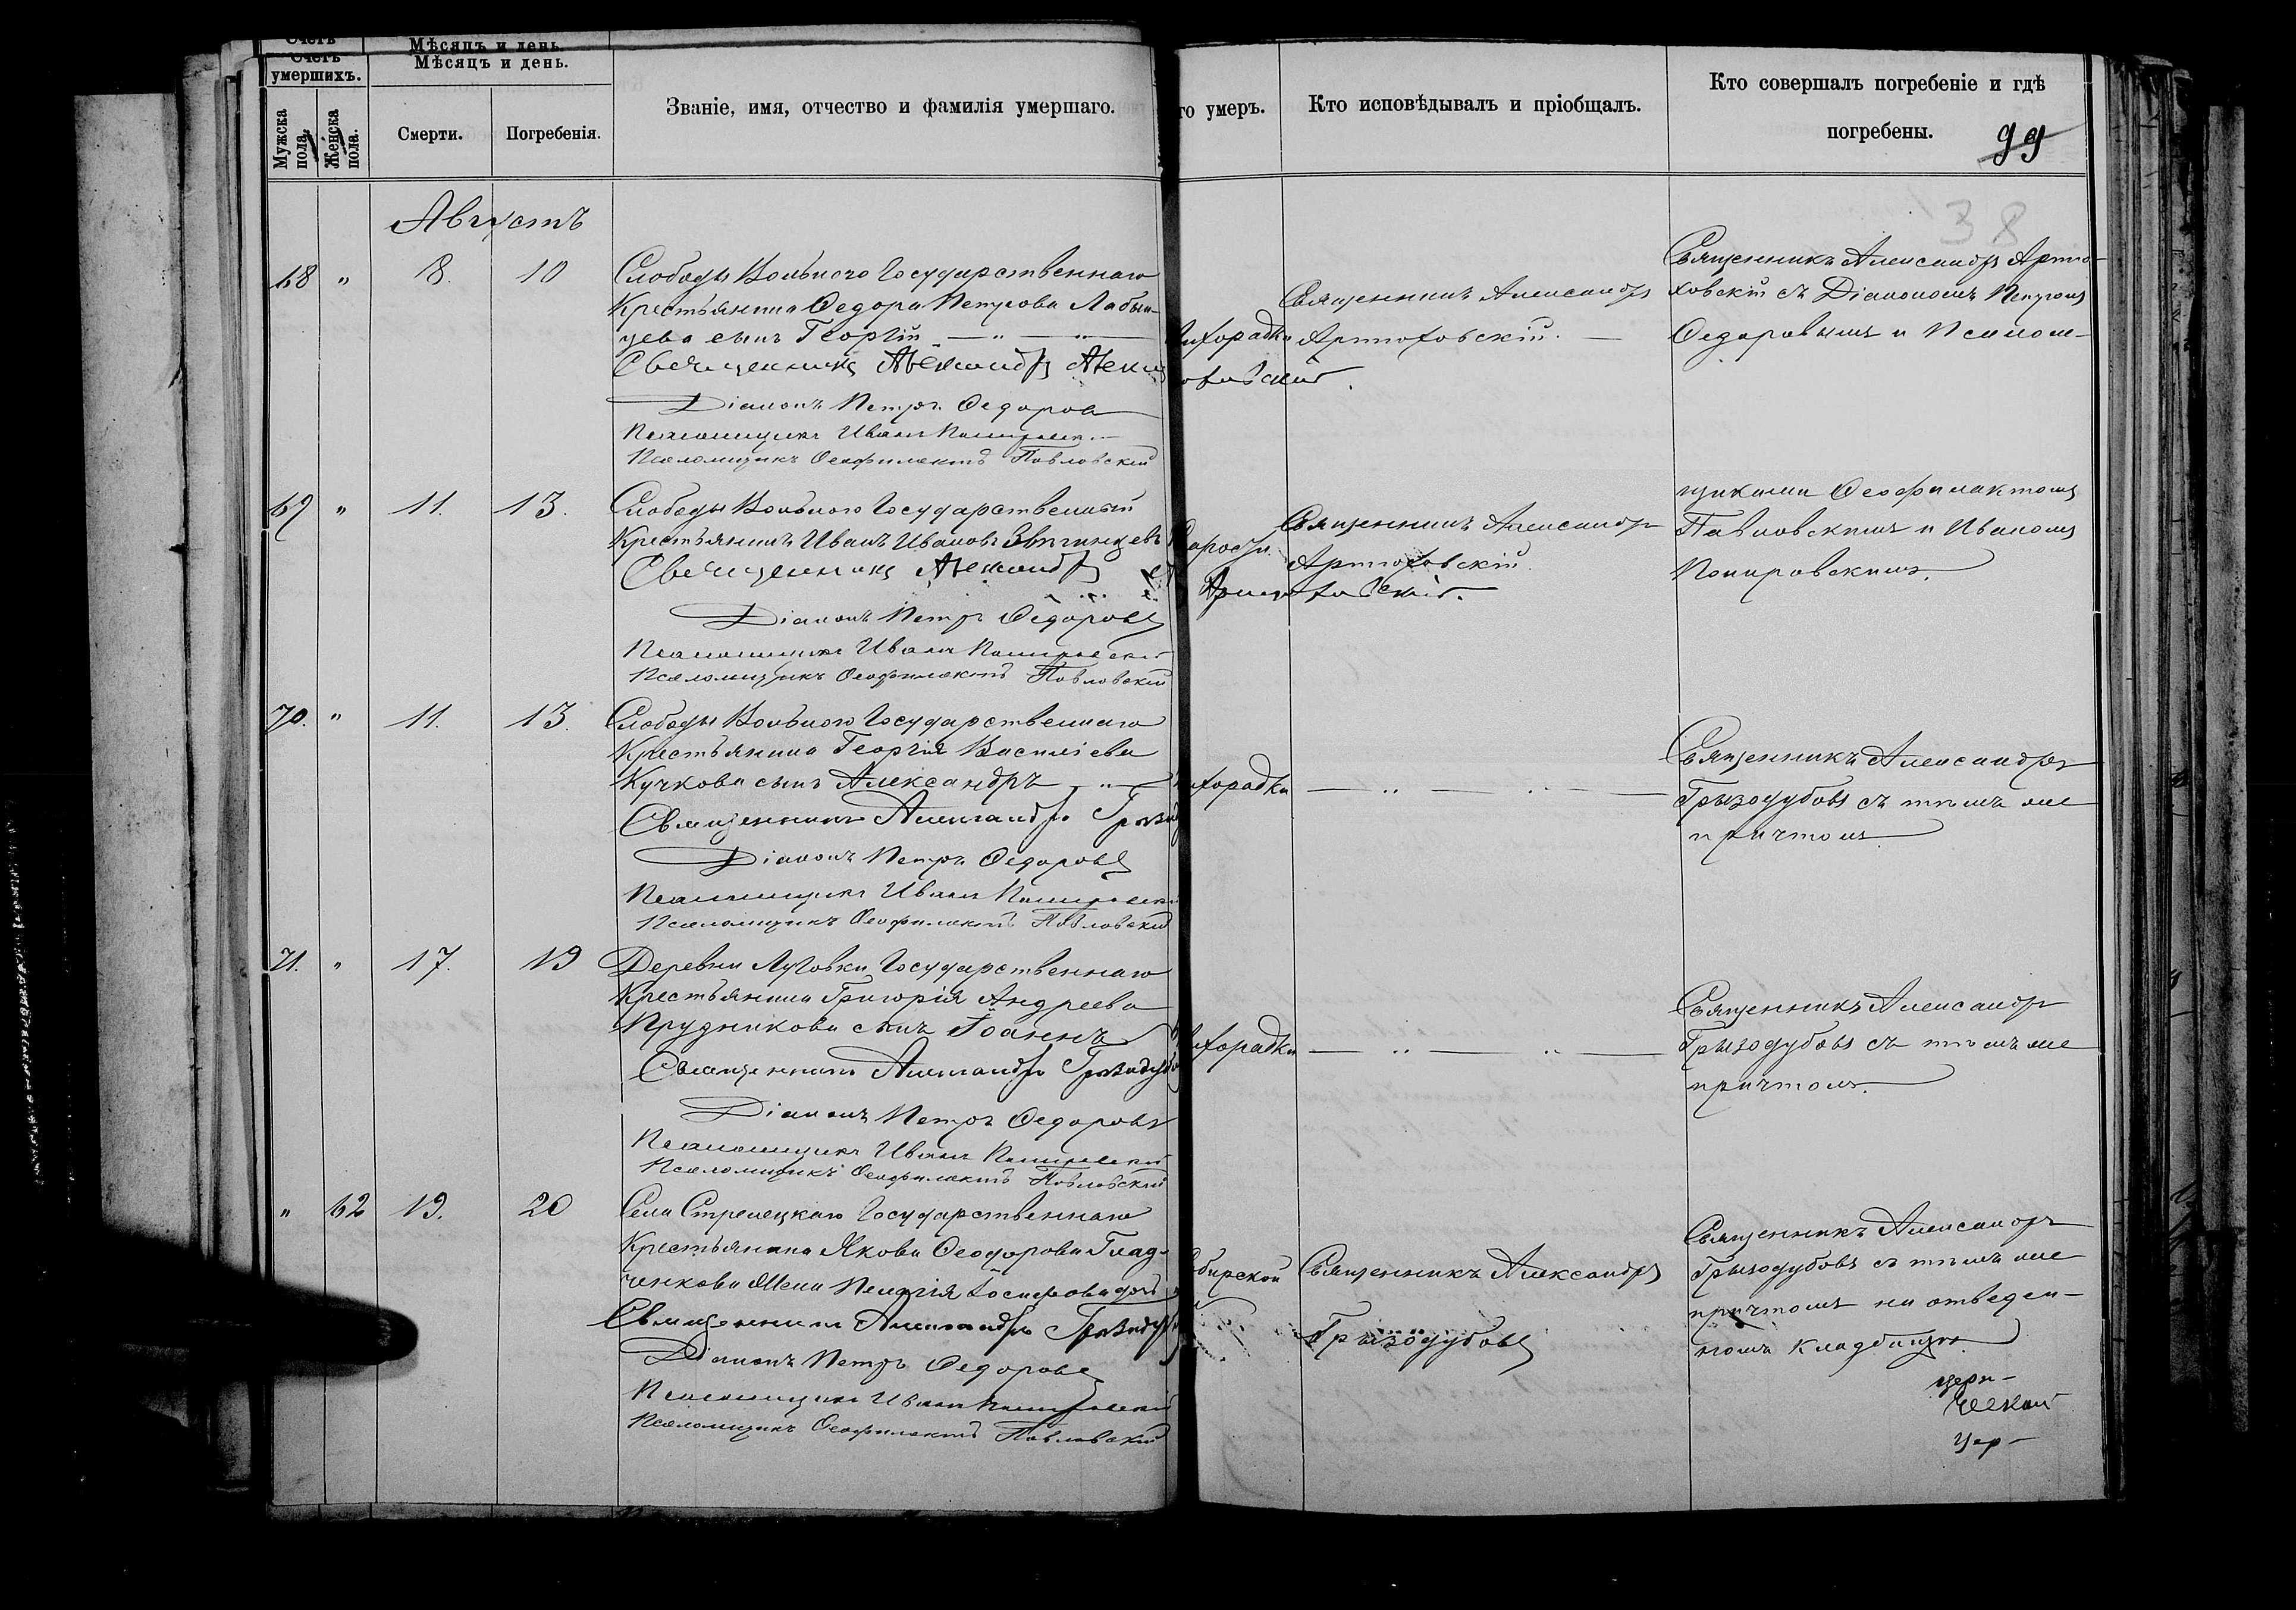 Счетъ
Мѣсяцъ и день.
Счетъ умершихъ.
Мѣсяцъ и день.
Мужска пола.
Женска пола.
Смерти.
Погребенія.
Званіе, имя, отчество и фамилія умершаго.
го умеръ.
Кто исповѣдывалъ и пріобщалъ.
Кто совершалъ погребеніе и гдѣ
погребены.
99
38
Августъ
68 " 8. 10
Слободы Вольного Государственнаго
Крестьянина Ѳедора Петрова Лабын-
цева сынъ Георгій
Священникъ Александръ
Діаконъ Петръ Ѳедоровъ
Псаломщикъ Иванъ
Псаломщикъ Ѳеофилактъ Павловскій
ихорадки
Священникъ Александръ
Артюховскій.
Священникъ Александръ Артю-
ховскій съ Діакономъ Петромъ
Ѳедоровымъ и Псалом-
69 " 11. 13.
Слободы Вольного Государственный
Крестьянинъ Иванъ Ивановъ Звягинцевъ
Священникъ Александръ
Діаконъ Петръ Ѳедоровъ
Псаломщикъ Иванъ
Псаломщикъ Ѳеофилактъ Павловскій
Священникъ Александръ
Артюховскій.
щиками Ѳеофилактомъ
Павловскимъ и Иваномъ
70. " 11. 13.
Слободы Вольного Государственнаго
Крестьянина Георгія Василіева
Кучкова сынъ Александръ
Священникъ Александръ
Діаконъ Петръ Ѳедоровъ
Псаломщикъ Иванъ
Псаломщикъ Ѳеофилактъ Павловскій
ихорадки
Священникъ Александръ
Грызодубовъ съ тѣмъ же
причтомъ
71. " 17. 19
Деревни Луговки Государственнаго
Крестьянина Григорія Андреева
Прудникова сынъ Іоаннъ
Священникъ Александръ
Діаконъ Петръ Ѳедоровъ
Псаломщикъ Иванъ
Псаломщикъ Ѳеофилактъ Павловскій
ихорадки
Священникъ Александръ
Грызодубовъ съ тѣмъ же
причтомъ.
" 62 19. 20
Села Стрелецкаго Государственнаго
Крестьянина Якова Ѳеодорова Глад-
ченкова жена Пелагія Іосифова
Священникъ Александръ
Діаконъ Петръ Ѳедоровъ
Псаломщикъ Иванъ
Псаломщикъ Ѳеофилактъ Павловскій
бирской
Священникъ Александръ
Грызодубовъ
Священникъ Александръ
Грызодубовъ съ тѣмъ же
причтомъ на отведен-
номъ кладбищѣ.